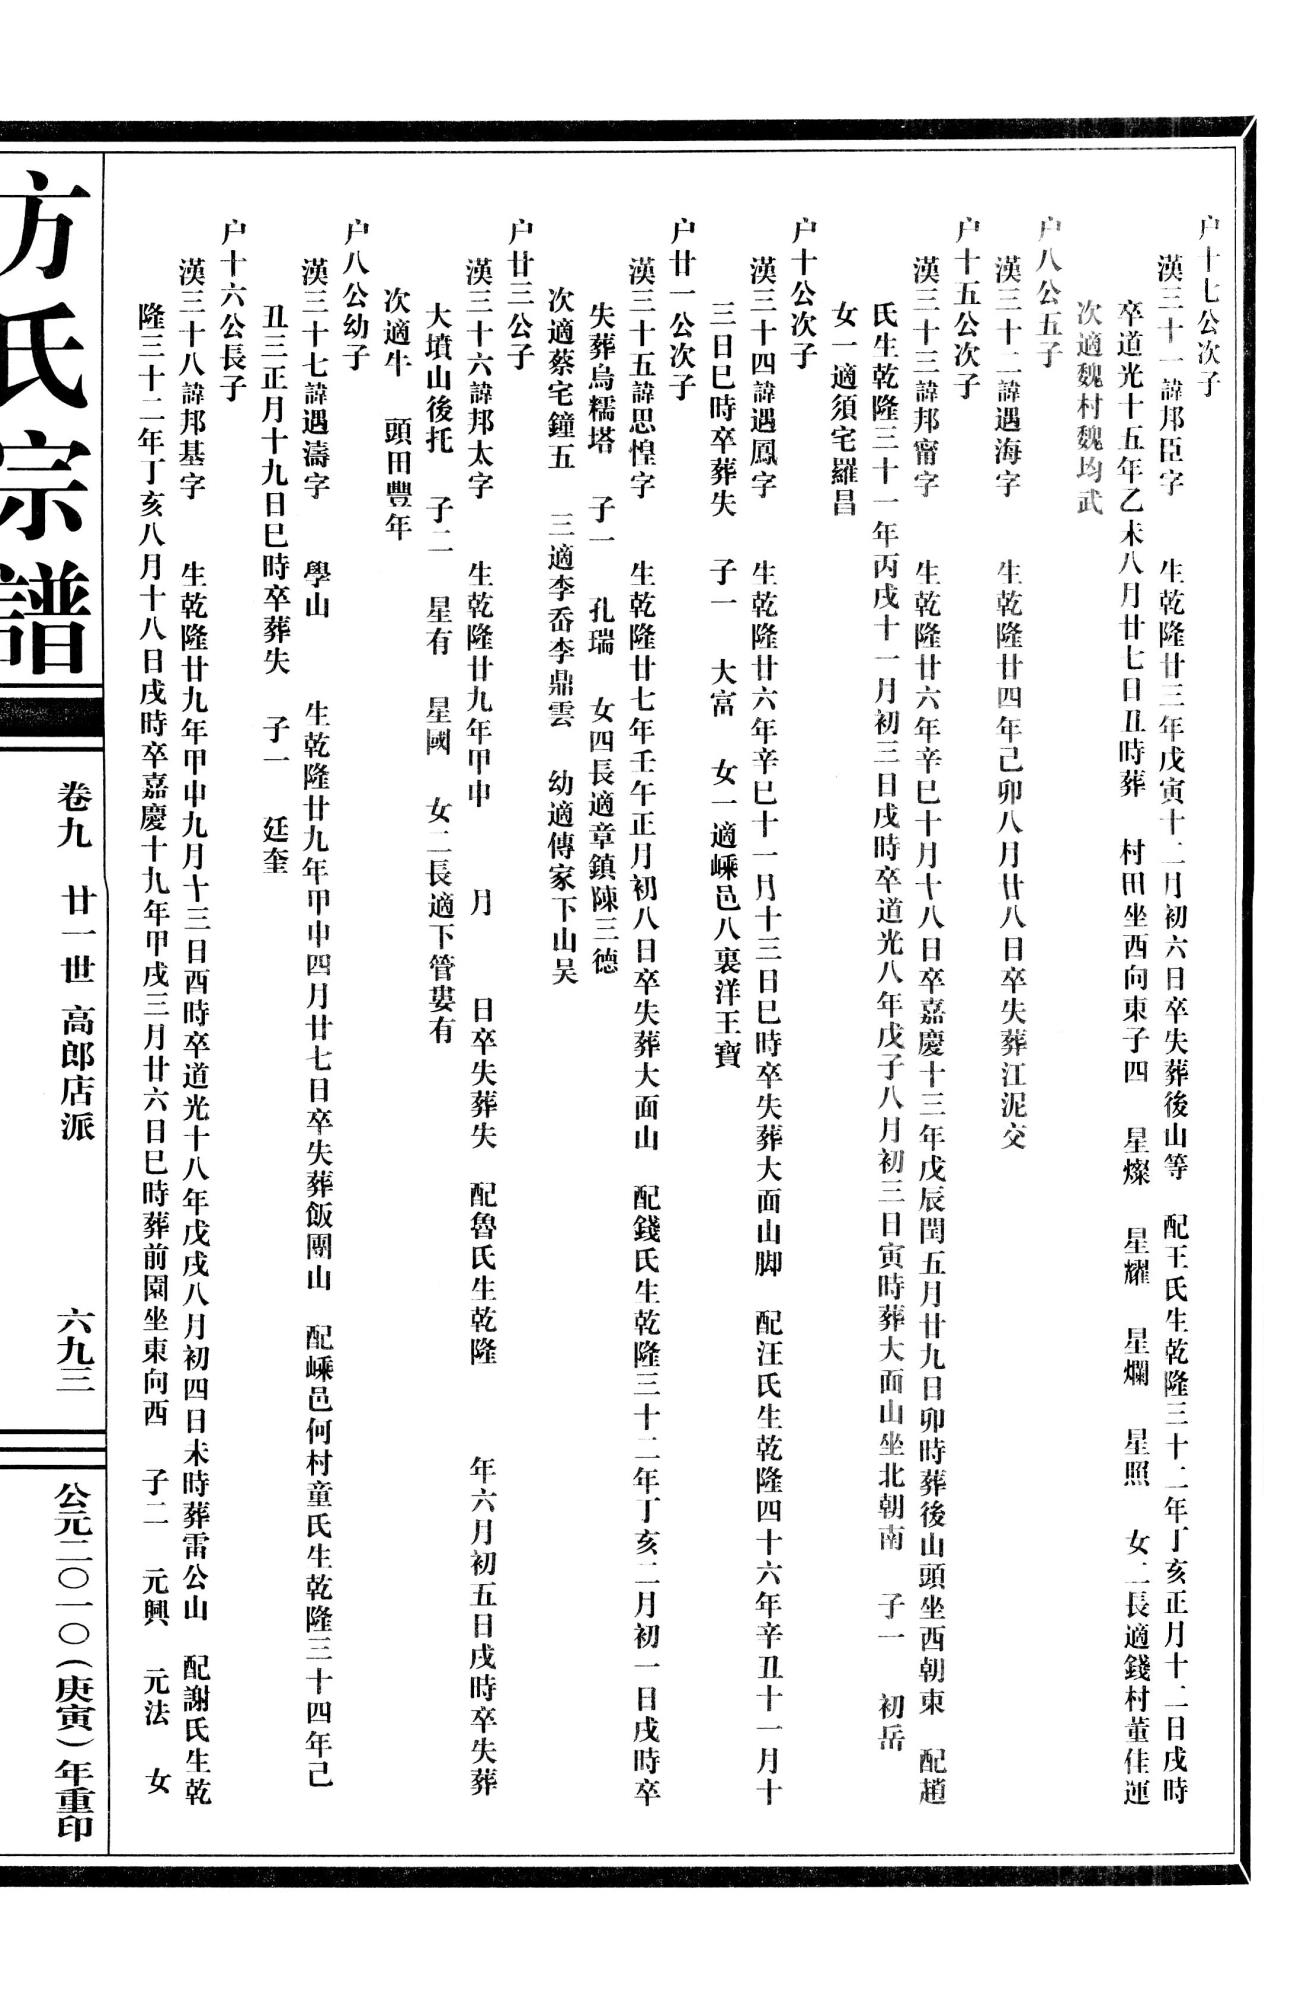 户十七公次子
漢三十一諱邦臣字　生乾隆廿三年戊寅十二月初六日卒失葬後山等　配王氏生乾隆三十二年丁亥正月十二日戌時
卒道光十五年乙未八月廿七日丑時葬　村田坐西向東子四　星燦　星耀　星爛　星照　女二長適錢村董佳運
次適魏村魏均武
户八公五子
漢三十二諱遇海字　生乾隆廿四年己卯八月廿八日卒失葬江泥交
户十五公次子
漢三十三諱邦甯字　生乾隆廿六年辛巳十月十八日卒嘉慶十三年戊辰閏五月廿九日卯時葬後山頭坐西朝東　配趙
氏生乾隆三十一年丙戌十一月初三日戌時卒道光八年戊子八月初三日寅時葬大面山坐北朝南　子一　初岳
女一適須宅羅昌
户十公次子
漢三十四諱遇鳳字　生乾隆廿六年辛巳十一月十三日巳時卒失葬大面山脚　配汪氏生乾隆四十六年辛丑十一月十
三日巳時卒葬失　子一　大富　女一適嵊邑八裏洋王寶
户廿一公次子
漢三十五諱思惶字　生乾隆廿七年壬午正月初八日卒失葬大面山　配錢氏生乾隆三十二年丁亥二月初一日戌時卒
失葬烏糯塔　子一　孔瑞　女四長適章鎮陳三德
次適蔡宅鐘五　三適李岙李鼎雲　幼適傳家下山吴
户廿三公子
漢三十六諱邦太字　生乾隆廿九年甲申　月　日卒失葬失　配魯氏生乾隆　年六月初五日戌時卒失葬
大墳山後托　子二　星有　星國　女二長適下管婁有
次適牛　頭田豐年
户八公幼子
漢三十七諱遇濤字　學山　生乾隆廿九年甲申四月廿七日卒失葬飯團山　配嵊邑何村童氏生乾隆三十四年己
丑三正月十九日巳時卒葬失　子一　廷奎
户十六公長子
漢三十八諱邦基字　生乾隆廿九年甲申九月十三日酉時卒道光十八年戊戌八月初四日未時葬雷公山　配謝氏生乾
隆三十二年丁亥八月十八日戌時卒嘉慶十九年甲戌三月廿六日巳時葬前園坐東向西　子二　元興　元法　女
方氏宗譜
卷九　廿一世　高郎店派
六九三
公元二〇一〇（庚寅）年重印